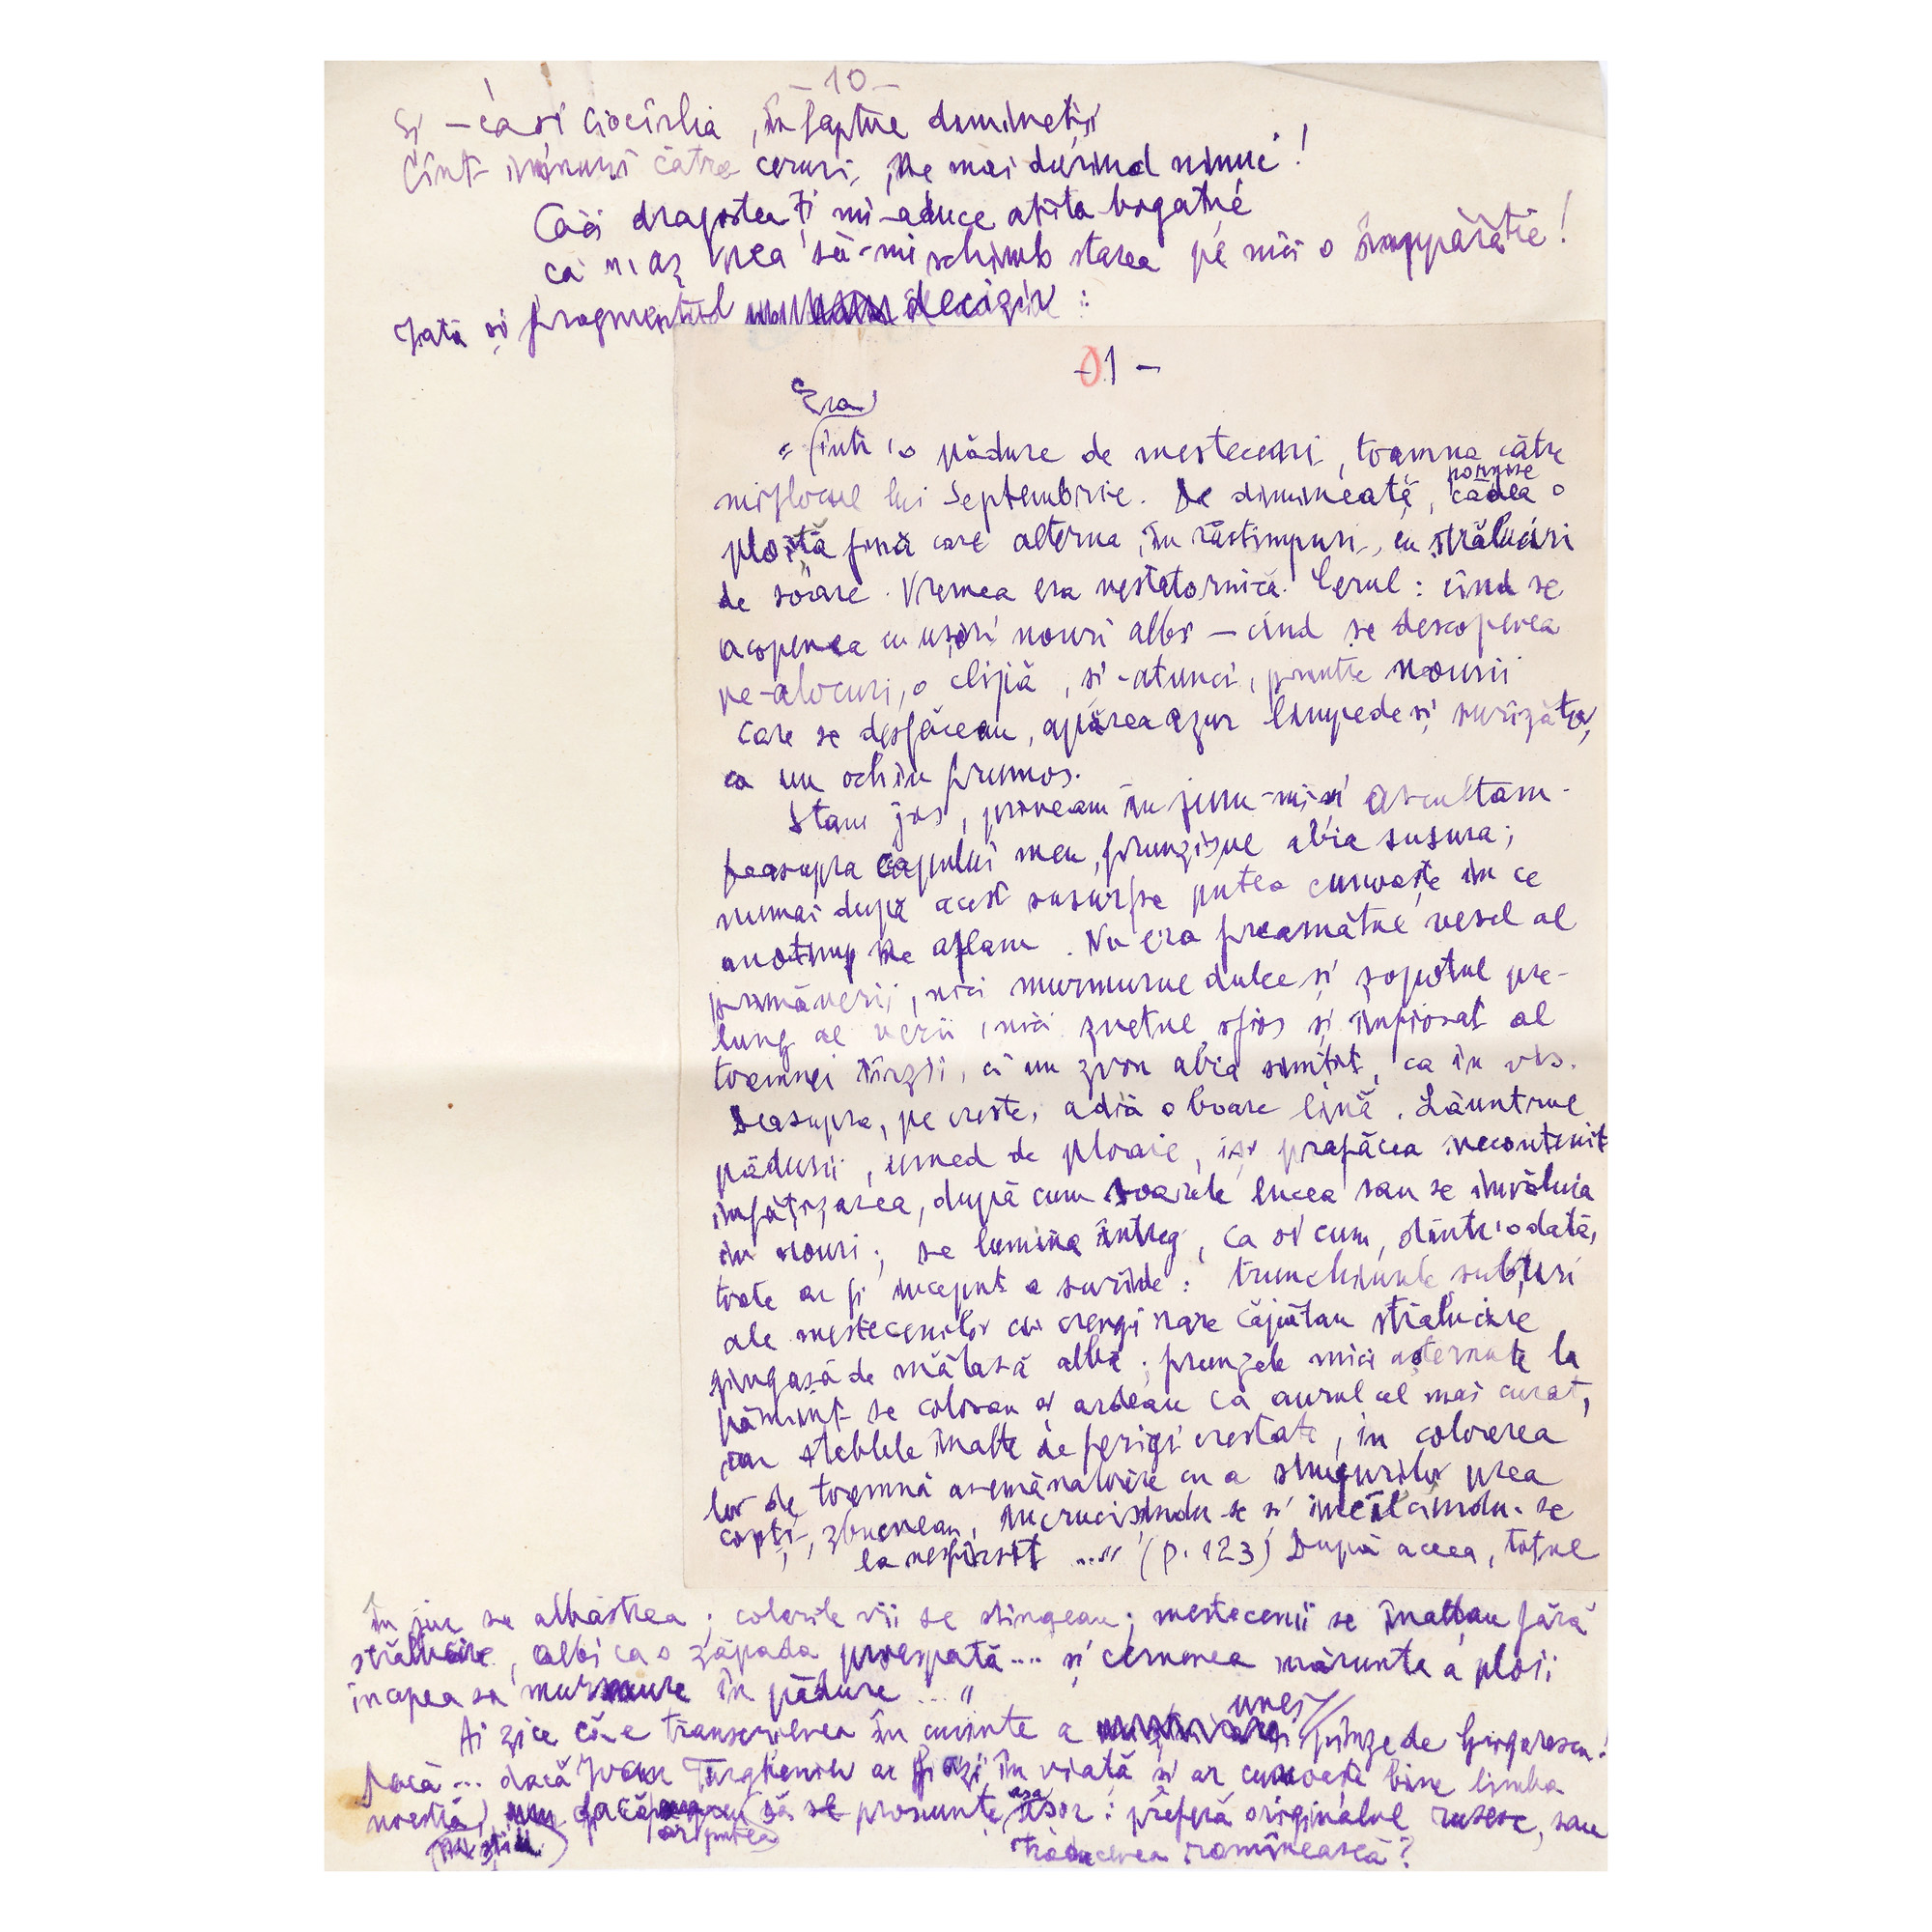 - 10 -
Și - ca și Ciocîrlia, în faptul dimineții
Cînt imnuri către ceruri, ne mai dorind nimic!
Căci dragostea-ți mi-aduce atîta bogăție
că n'aș vrea să-mi schimb starea pe nici o împărăție!
Iată și fragmentul decizie :
- 01 -
Era
" într'o pădure de mesteceni, toamna către
pornise
mijlocul lui Septembrie. De dimineață, cădea o
ploiță fină care alterna, în răstimpuri, cu străluciri
de soare. Vremea era nestatornică. Cerul : cînd se
acoperea cu ușori nouri albi — cînd se descoperea
pe-alocuri, o clipă, și-atunci, printre nourii
care se desfăceau, apărea azur limpede și surîzător,
ca un ochiu frumos.
Stam jos, priveam în juru-mi și ascultam.
Deasupra capului meu, frunzișul abia susura;
numai după acest susur se putea cunoaște în ce
anotimp ne aflam. Nu era freamătul vesel al
primăverii, nici murmurul dulce și șopotul pre-
lung al verii, nici freamătul sfios și înfiorat al
toamnei tîrzii, ci un zvon abia simțit, ca în vis.
Deasupra, pe creste, adia o boare lină. Lăuntrul
pădurii, umed de ploaie, își prefăcea necontenit
înfățișarea, după cum soarele lucea sau se învăluia
în nouri; se lumina întreg, ca și cum, dintr'odată,
toate ar fi început a surîde : trunchiurile subțiri
ale mestecenilor cu crengi rare căpătau strălucire
gingașă de mătasă albă; frunzele mici așternute la
pămînt se colorau și ardeau ca aurul cel mai curat,
iar steblele înalte de ferigi crestate, în colorarea
lor de toamnă asemănătoare cu a strugurilor prea
copți, zbucneau, încrucișîndu-se și încîlcindu-se
la nesfîrșit ...." (p. 123) După aceea, totul
în jur se albăstrea; colorile vii se stingeau; mestecenii se înălțau fără
strălucire, albi ca o zăpadă proaspătă.... și cernerea măruntă a ploii
începea să murmure în pădure ...."
Ai zice că e transcrierea în cuvinte a unei pînze de Grigorescu!
Dacă ... dacă Ivan Turghenin ar fi azi în viață și ar cunoaște bine limba
noastră, nu știu dacă ar putea să se pronunțe așa ușor : preferă originalul rusesc, sau
traducerea romînească?